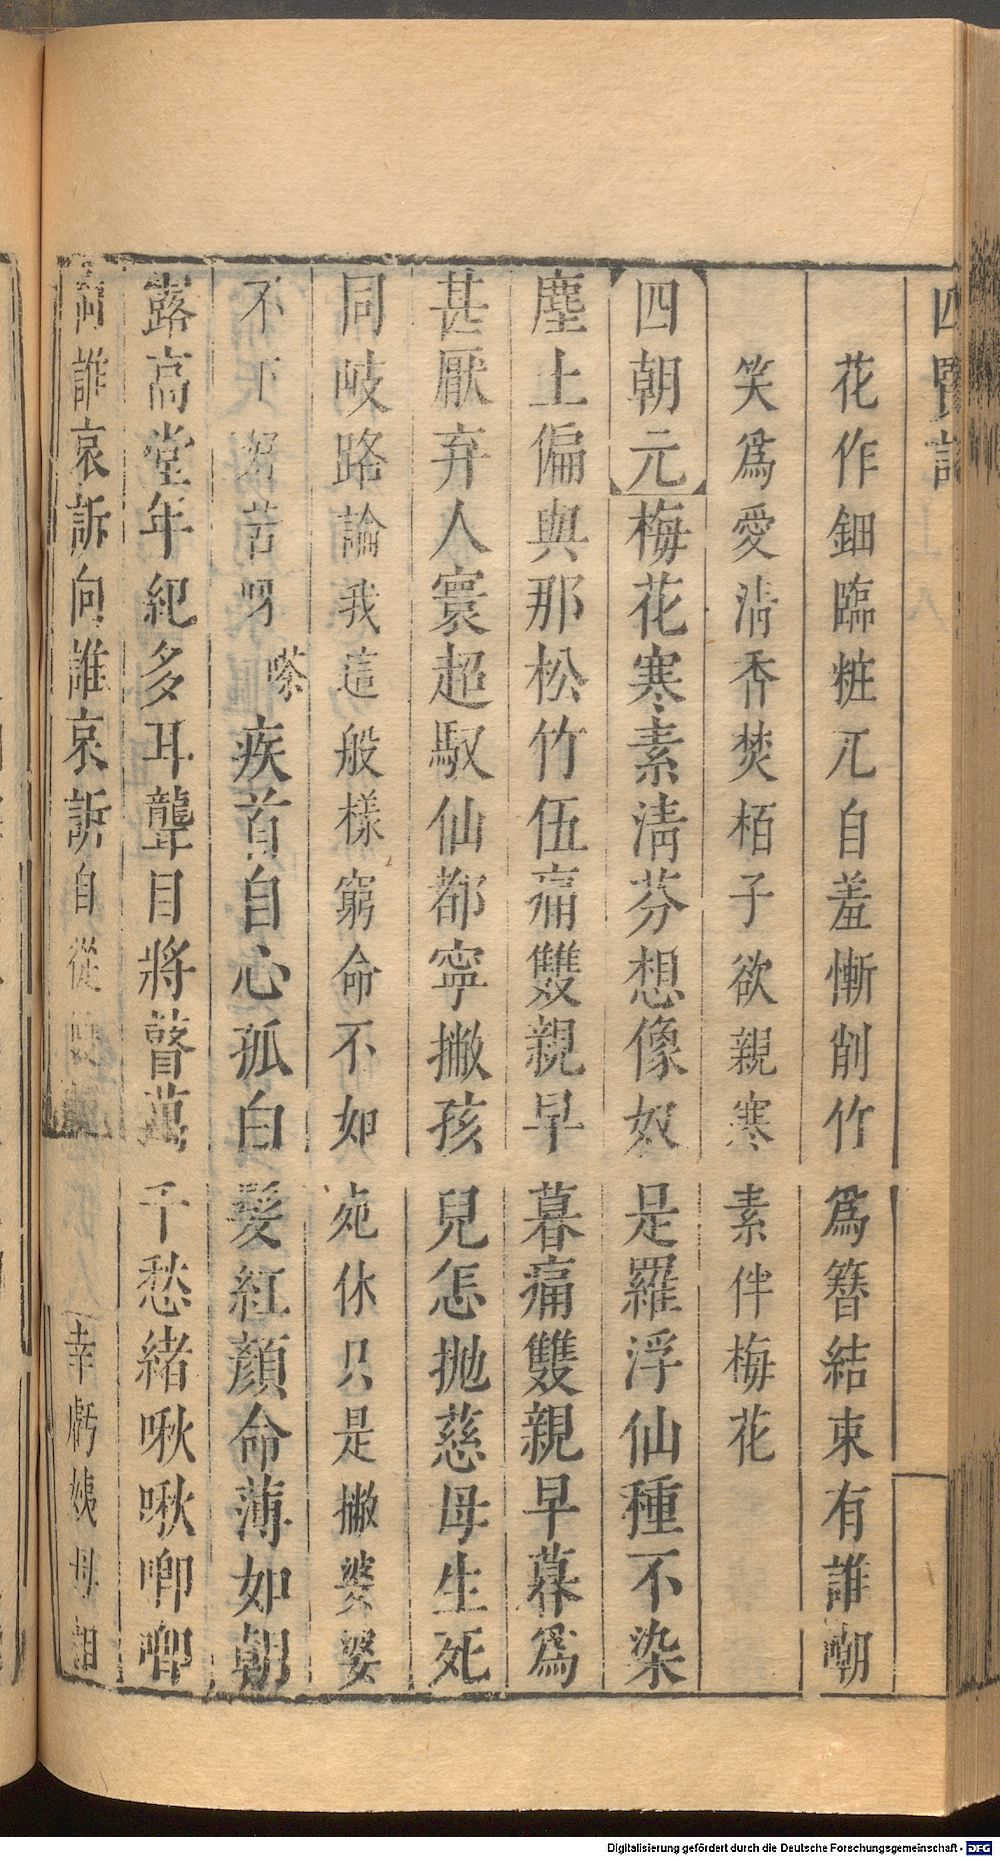 四賢記
花作鈿臨粧兀自羞慚削竹爲簪結束有誰嘲
笑爲愛淸香焚栢子欲親寒素伴梅花
四朝元梅花寒素淸芬想像奴是羅浮仙種不染
塵土偏與那松竹伍痛雙親早暮痛雙親早暮爲
甚厭弃人寰超馭仙都寧撇孩兒怎抛慈母生死
同岐路論我這般樣窮命不如死休只是撇婆婆
不下苦呀嗏疾首自心孤白髮紅顏命薄如朝
露高堂年紀多耳聾目將瞽萬千愁緒啾啾唧唧
向誰哀訴向誰哀訴自從幸虧姨母相
Digitalisierung gefördert durch die Deutsche Forschungsgemeinschaft - DFG